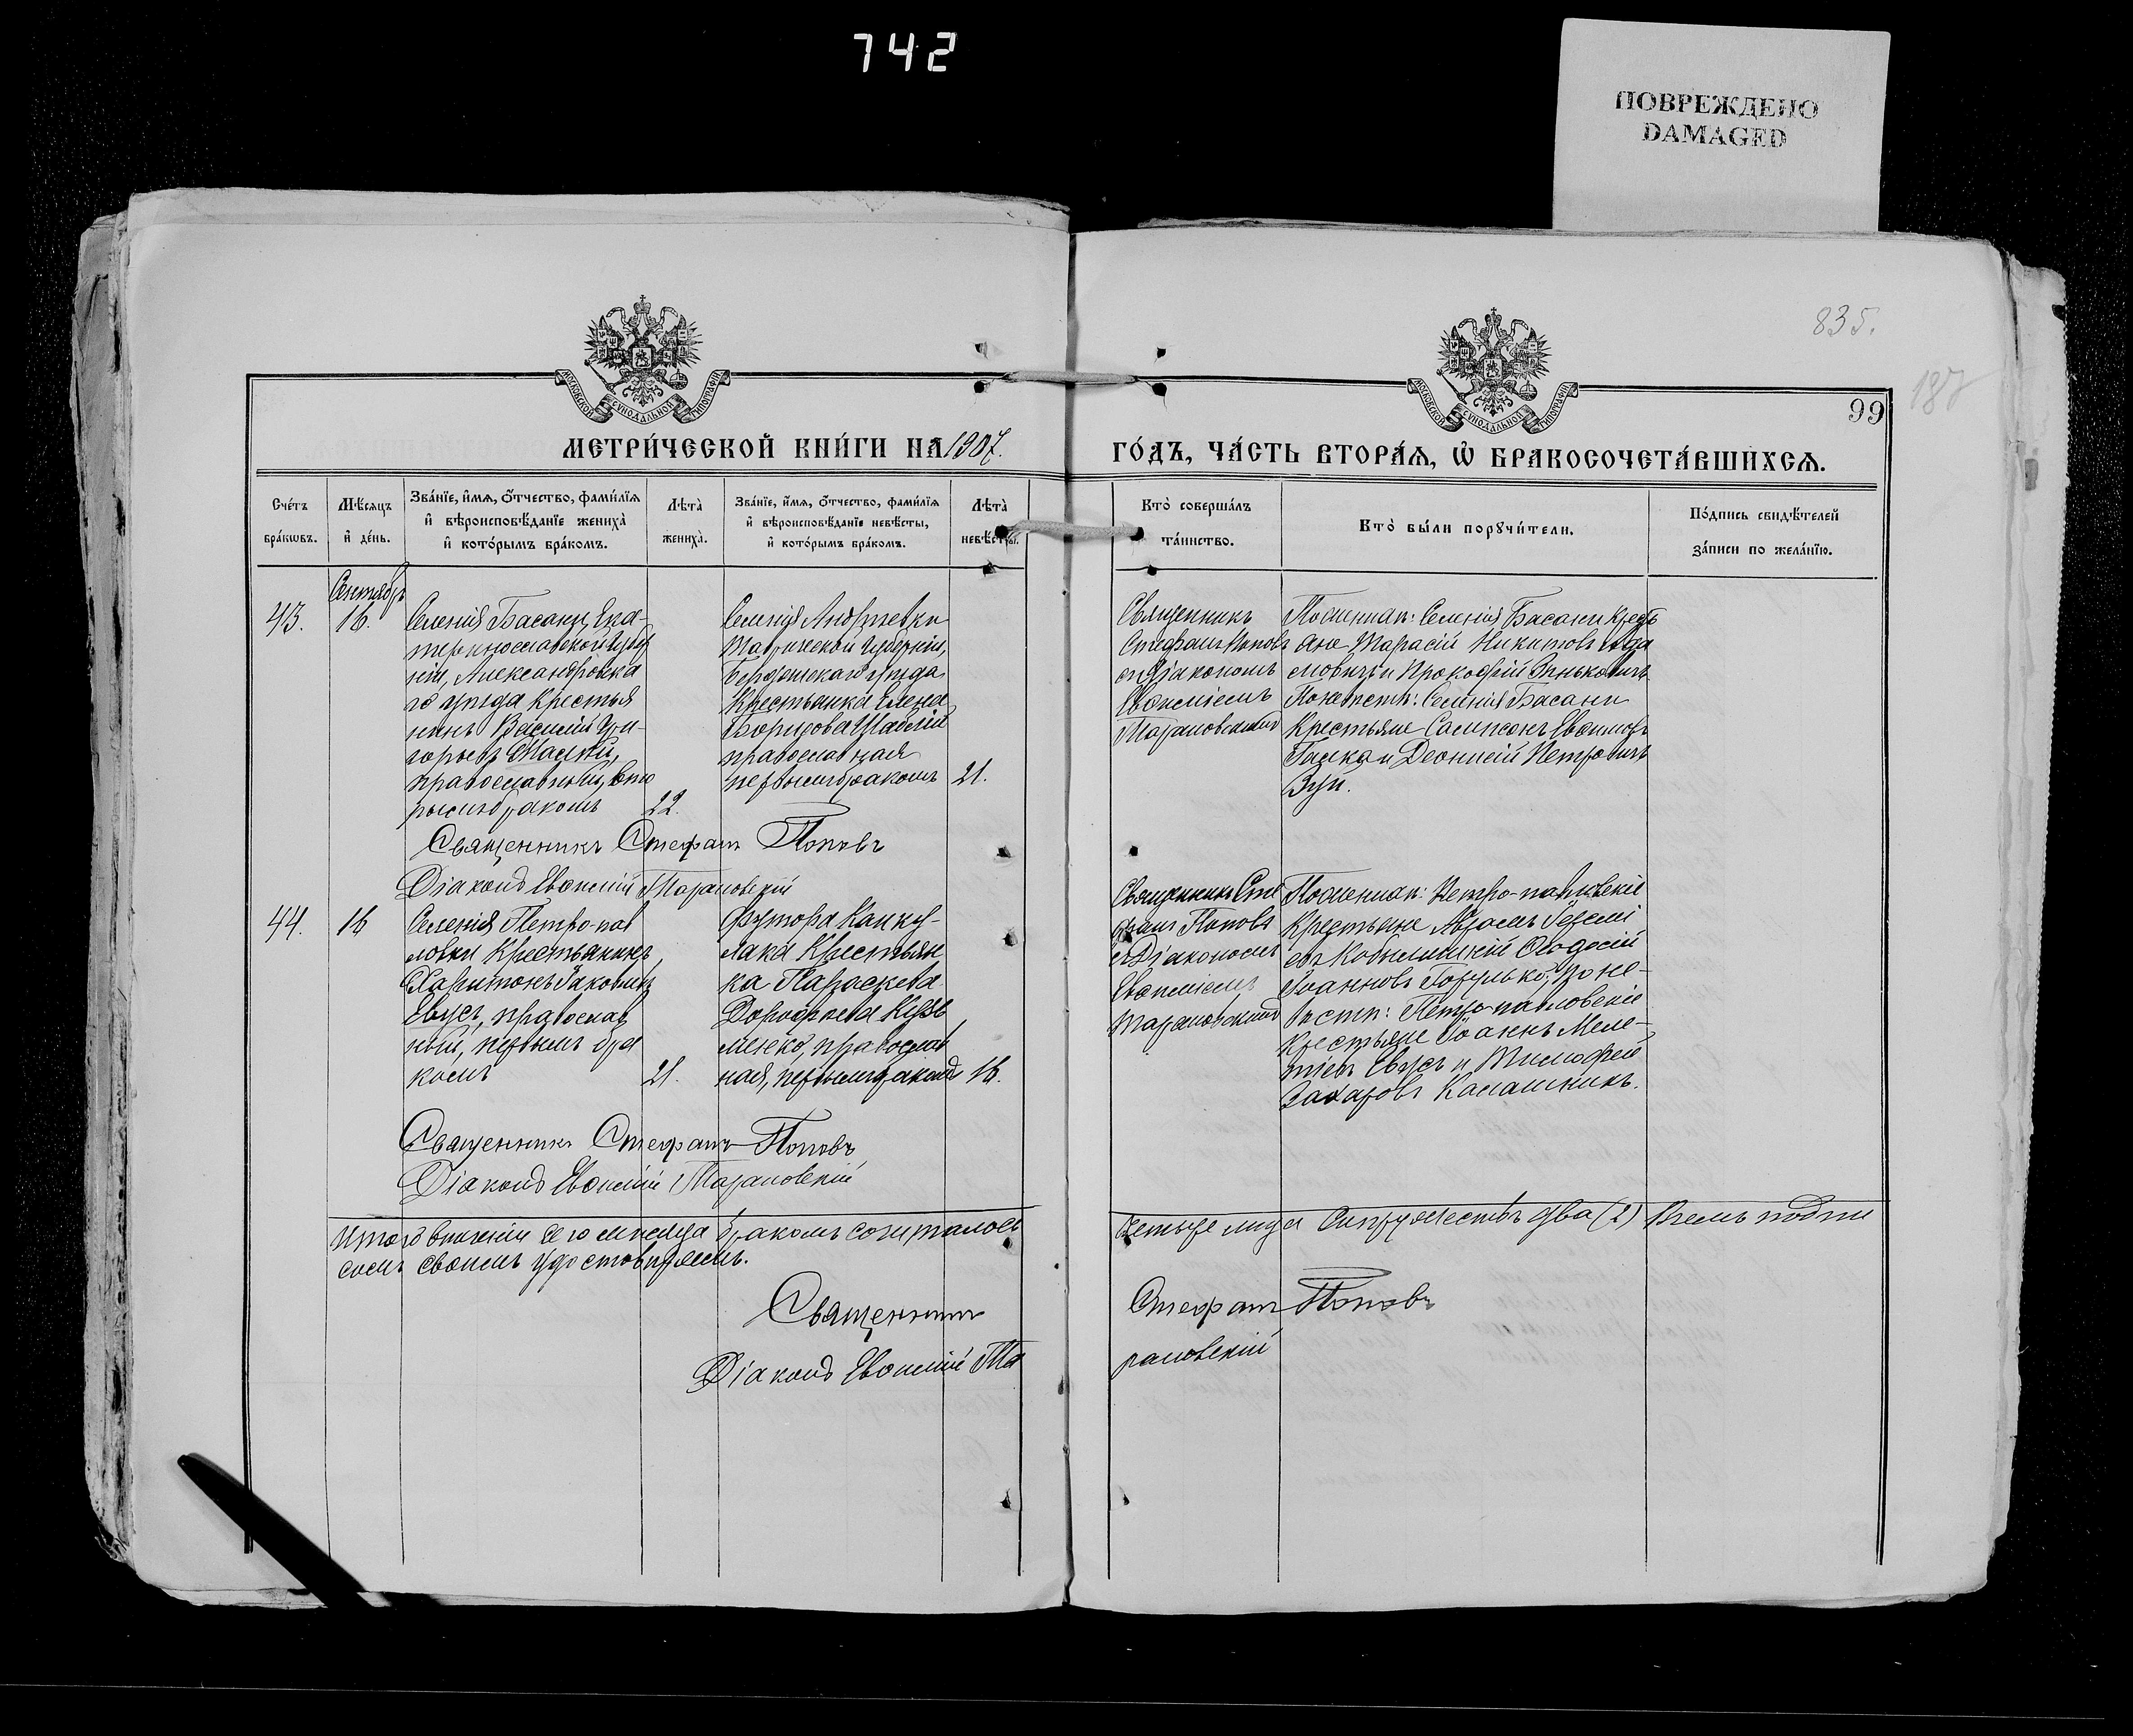 742
ПОВРЕЖДЕНО
DAMAGED
835.
187
99
МОСКОВСКОЙ СѴНОДАЛЬНОЙ ТИПОГРАФІИ
МОСКОВСКОЙ СѴНОДАЛЬНОЙ ТИПОГРАФІИ
МЕТРИ́ЧЕСКОЙ КНИ́ГИ НА 1907.
ГО́ДЪ, ЧА́СТЬ ВТОРА́Я, Ѡ БРАКОСОЧЕТА́ВШИХСЯ.
Сче́тъ
бра́кѡвъ.
Мѣ́сяцъ
и҆ де́нь.
Зва́нїе, и҆́мя, ѻ҆́тчество, фами́лїя
и҆ вѣроисповѣ́данїе жениха̀
и҆ кото́рымъ бра́комъ.
Лѣта̀
жениха̀.
Зва́нїе, и҆́мя, ѻ҆́тчество, фами́лїя
и҆ вѣроисповѣ́данїе невѣ́сты,
и҆ кото́рымъ бра́комъ.
Лѣта̀
невѣ́сты.
Кто̀ соверша́лъ
та́инство.
Кто̀ бы́ли порꙋчи́тели.
По́дпись свидѣ́телей
за́писи по жела́нїю.
Сентябрь
43.
16.
Селенія Басани, Ека-
теринославской Губер
ніи, Александровска
го уѣзда крестья
нинъ Василій Гри-
горьевъ
православный, вто
рымъ бракомъ
22.
Селенія Андреевки
Таврической губерніи,
Бердянскаго уѣзда
Крестьянка Елена
Борисова
православная
первымъ бракомъ
21.
Священникъ
Стефанъ Поповъ
съ Діакономъ
Евѳиміемъ
Тарановскимъ
По женихѣ: Селенія Басани Кресть
яне Тарасій Никитовъ
и Прокофій
По невѣстѣ: Селенія Басани
Крестьяне Самсонъ Евѳимовъ
и Леонтій Петровичъ
Зуй.
Священникъ Стефанъ Поповъ
Діаконъ Евѳимій Тарановскій
44.
16
Селенія Петро-пав
ловки Крестьянинъ
Харитонъ Іаковлевъ
Евусъ, православ
ный, первымъ бра
комъ
21.
Хутора Канку-
лака Крестьян
ка Параскева
Дорофеева Кузь
менко, православ
ная, первымъ бракомъ
16.
Священникъ Сте
фанъ Поповъ
съ Діакономъ
Евѳиміемъ
Тарановскимъ
По женихѣ: Петро-павловскіе
Крестьяне Авраамъ Іеремі
евъ Кобылинскій Ѳеодосій
Іоанновъ Горулько; По не-
вѣстѣ: Петро-павловскіе
Крестьяне Іоаннъ Меле-
тіевъ Евусъ и Тимофей
Захаровъ Калашникъ.
Священникъ Стефанъ Поповъ
Діаконъ Евѳимій Тарановскій
Итого втеченіи сего мѣсяца бракомъ сочеталось
четыре лица Супружествъ два (2) въ чемъ подпи
сомъ своимъ удостовѣряемъ.
Священникъ
Стефанъ Поповъ
Діаконъ Евѳимій Та
рановскій